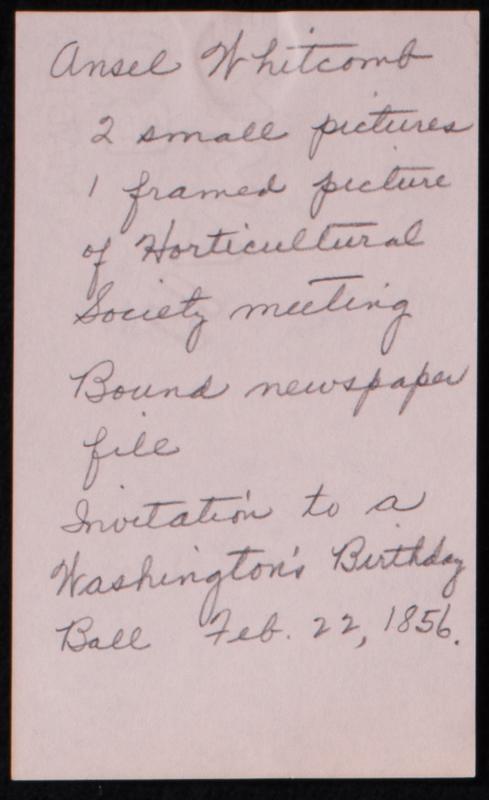 Ansel Whitcomb
2 small pictures
1 framed picture
of Horticultural
Society meeting
Bound newspaper
file
Invitation to a
Washington's Birthday
Ball Feb. 22, 1856.